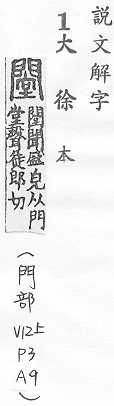 説文解字
1大徐本
闛
闛闛盛皃从門
堂聲徒郎切
(門部
V12上
P3
A9)